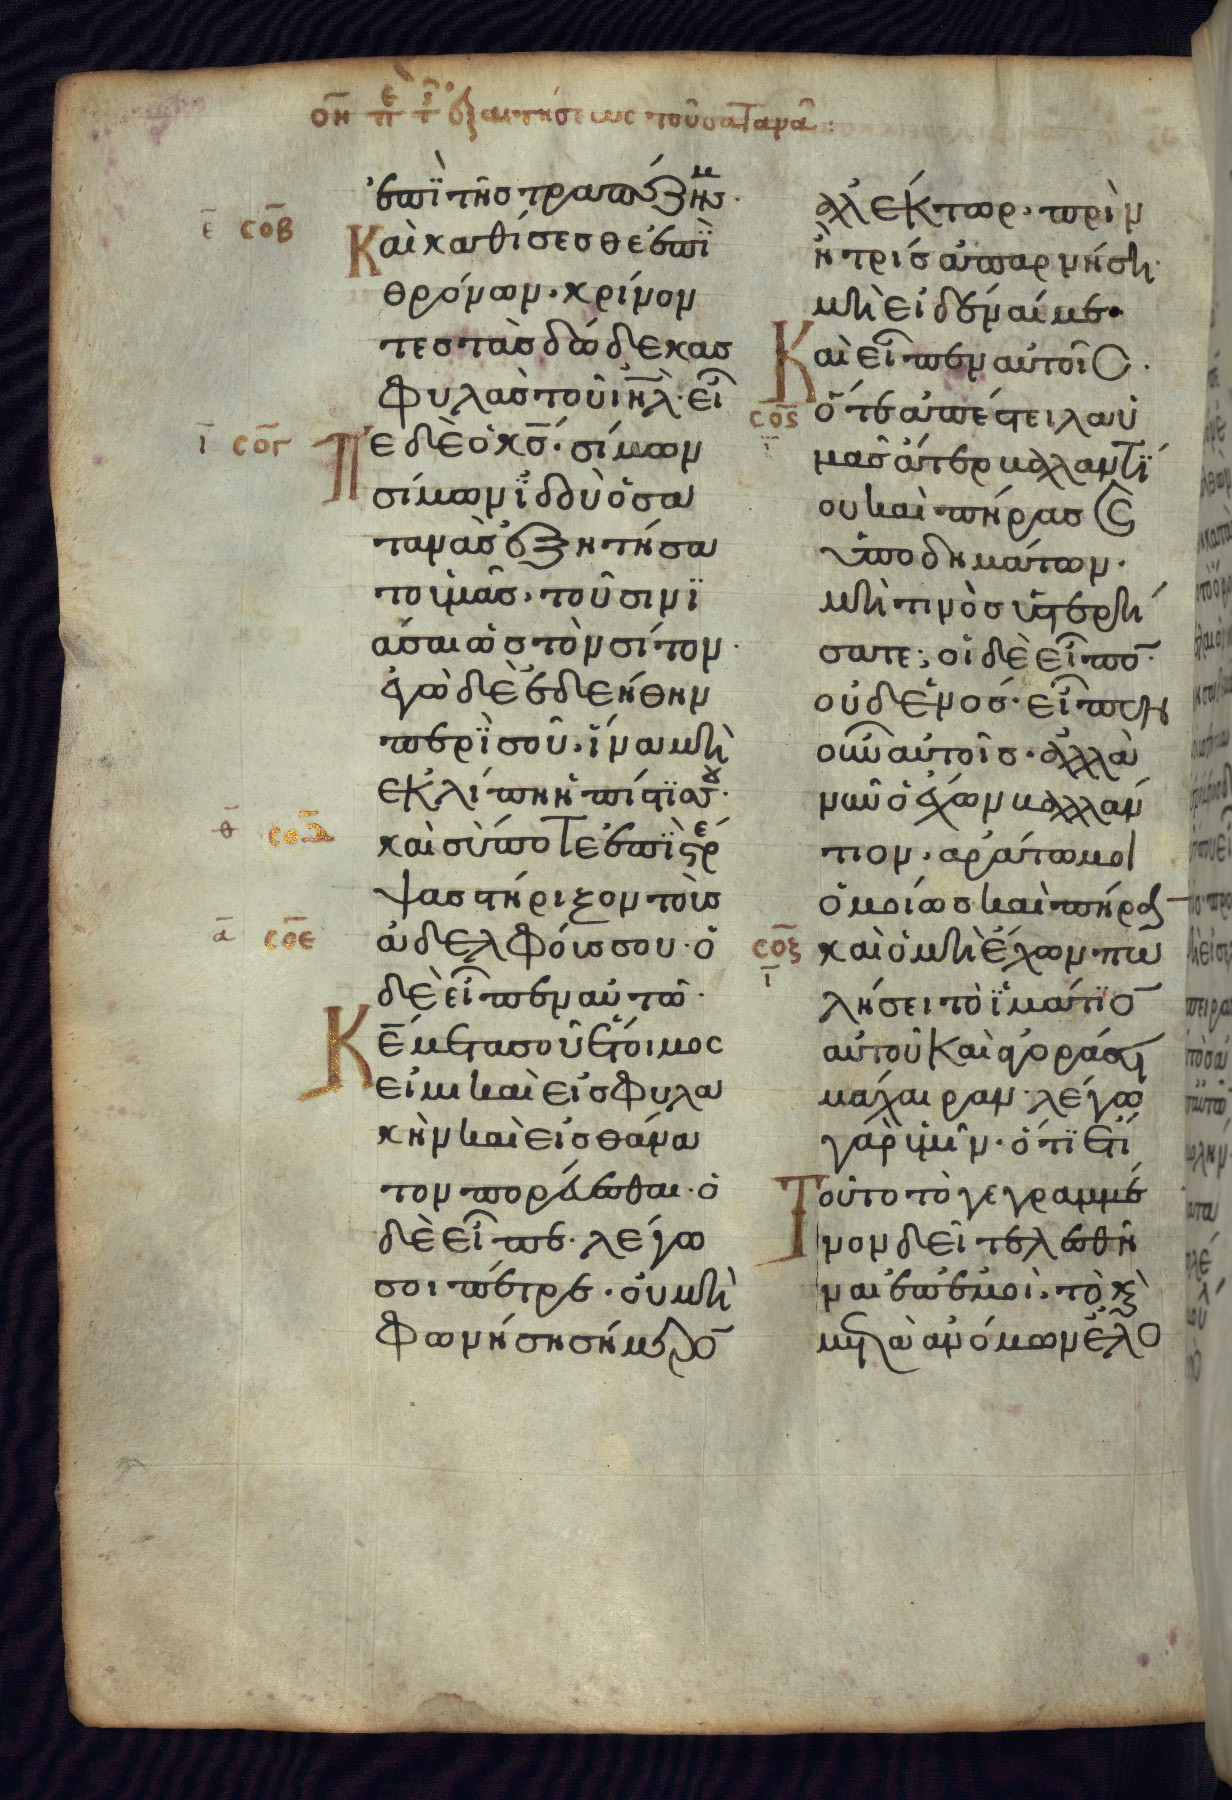 ο̅η̅ π̅ε τ̅ῆ ἐξαιτήσεως τοῦ σατανᾶ:
ἐπῒ τῆς τραπέζης μ.
ε̅ σ̅ο̅β̅
Καὶ καθίσεσθε ἐπῒ
θρόνων. κρίνον
τες τὰς δώδεκας
φυλὰς τοῦ ι̅η̅λ̅. εἶ
ι̅ σ̅ο̅γ̅
Πε δὲ ὁ κ̅ς̅. σίμων
σίμων ϊδοὺ ὁ σα
τανὰς ἐξητήσα
το ὑμᾶς. τοῦ σινϊ
άσαι ὡς τὸν σίτον.
ἐγὼ δὲ ἐδεήθην
περῒ σοῦ. ἵνα μὴ
ἐκλίπη ἡ πίστϊς σου.
θ̅ σ̅ο̅δ̅
καὶ σύ ποτε ἐπϊστρέ
ψας στήριξον τοὺς
α̅ σ̅ο̅ε̅
ἀδελφούς σου. ὁ
δὲ εἶπεν αὐτῶ.
Κ̅ε̅ μετὰ σοῦ ἕτοιμος
εἰμι καὶ εἰς φυλα
κὴν καὶ εἰς θάνα
τον πορεύεσθαι. ὁ
δὲ εἶπε. λέγω
σοι πέτρε. οὐ μὴ
φωνήση σήμερο̅
ἀλέκτωρ. πρὶν
ἢ τρίς ἀπαρνήση
μὴ εἰδέναι με.
Καὶ εἶπεν αὐτοῖς.
σ̅ο̅ς̅ ι̅
ὅτε ἀπέστειλα ὑ
μᾶς ἄτερ βαλλαντϊ
ου καὶ πήρας καὶ
ὑποδημάτων.
μὴ τινὸς ὑστερή
σατε; οἱ δὲ εἶπο̅.
οὐδενός. εἶπεν
οὖν αὐτοῖς. ἀλλὰ
νῦν ὁ ἔχων βαλλάν
τιον. ἀράτω μοι
ὁμοίως καὶ πήραν
σ̅ο̅ζ̅ ι̅
καὶ ὁ μὴ ἔχων. πω
λήσει τὸ ἱμάτϊο̅
αὐτοῦ καὶ ἀγοράσει
μάχαιραν. λέγω
γὰρ ὑμῖν. ὅτϊ ἔτι
Τοῦτο τὸ γεγραμμέ
νον δεῖ τελεσθῆ
ναι ἐπ' ἐμοὶ. τὸ καὶ
μετὰ ἀνόμων ἐλο